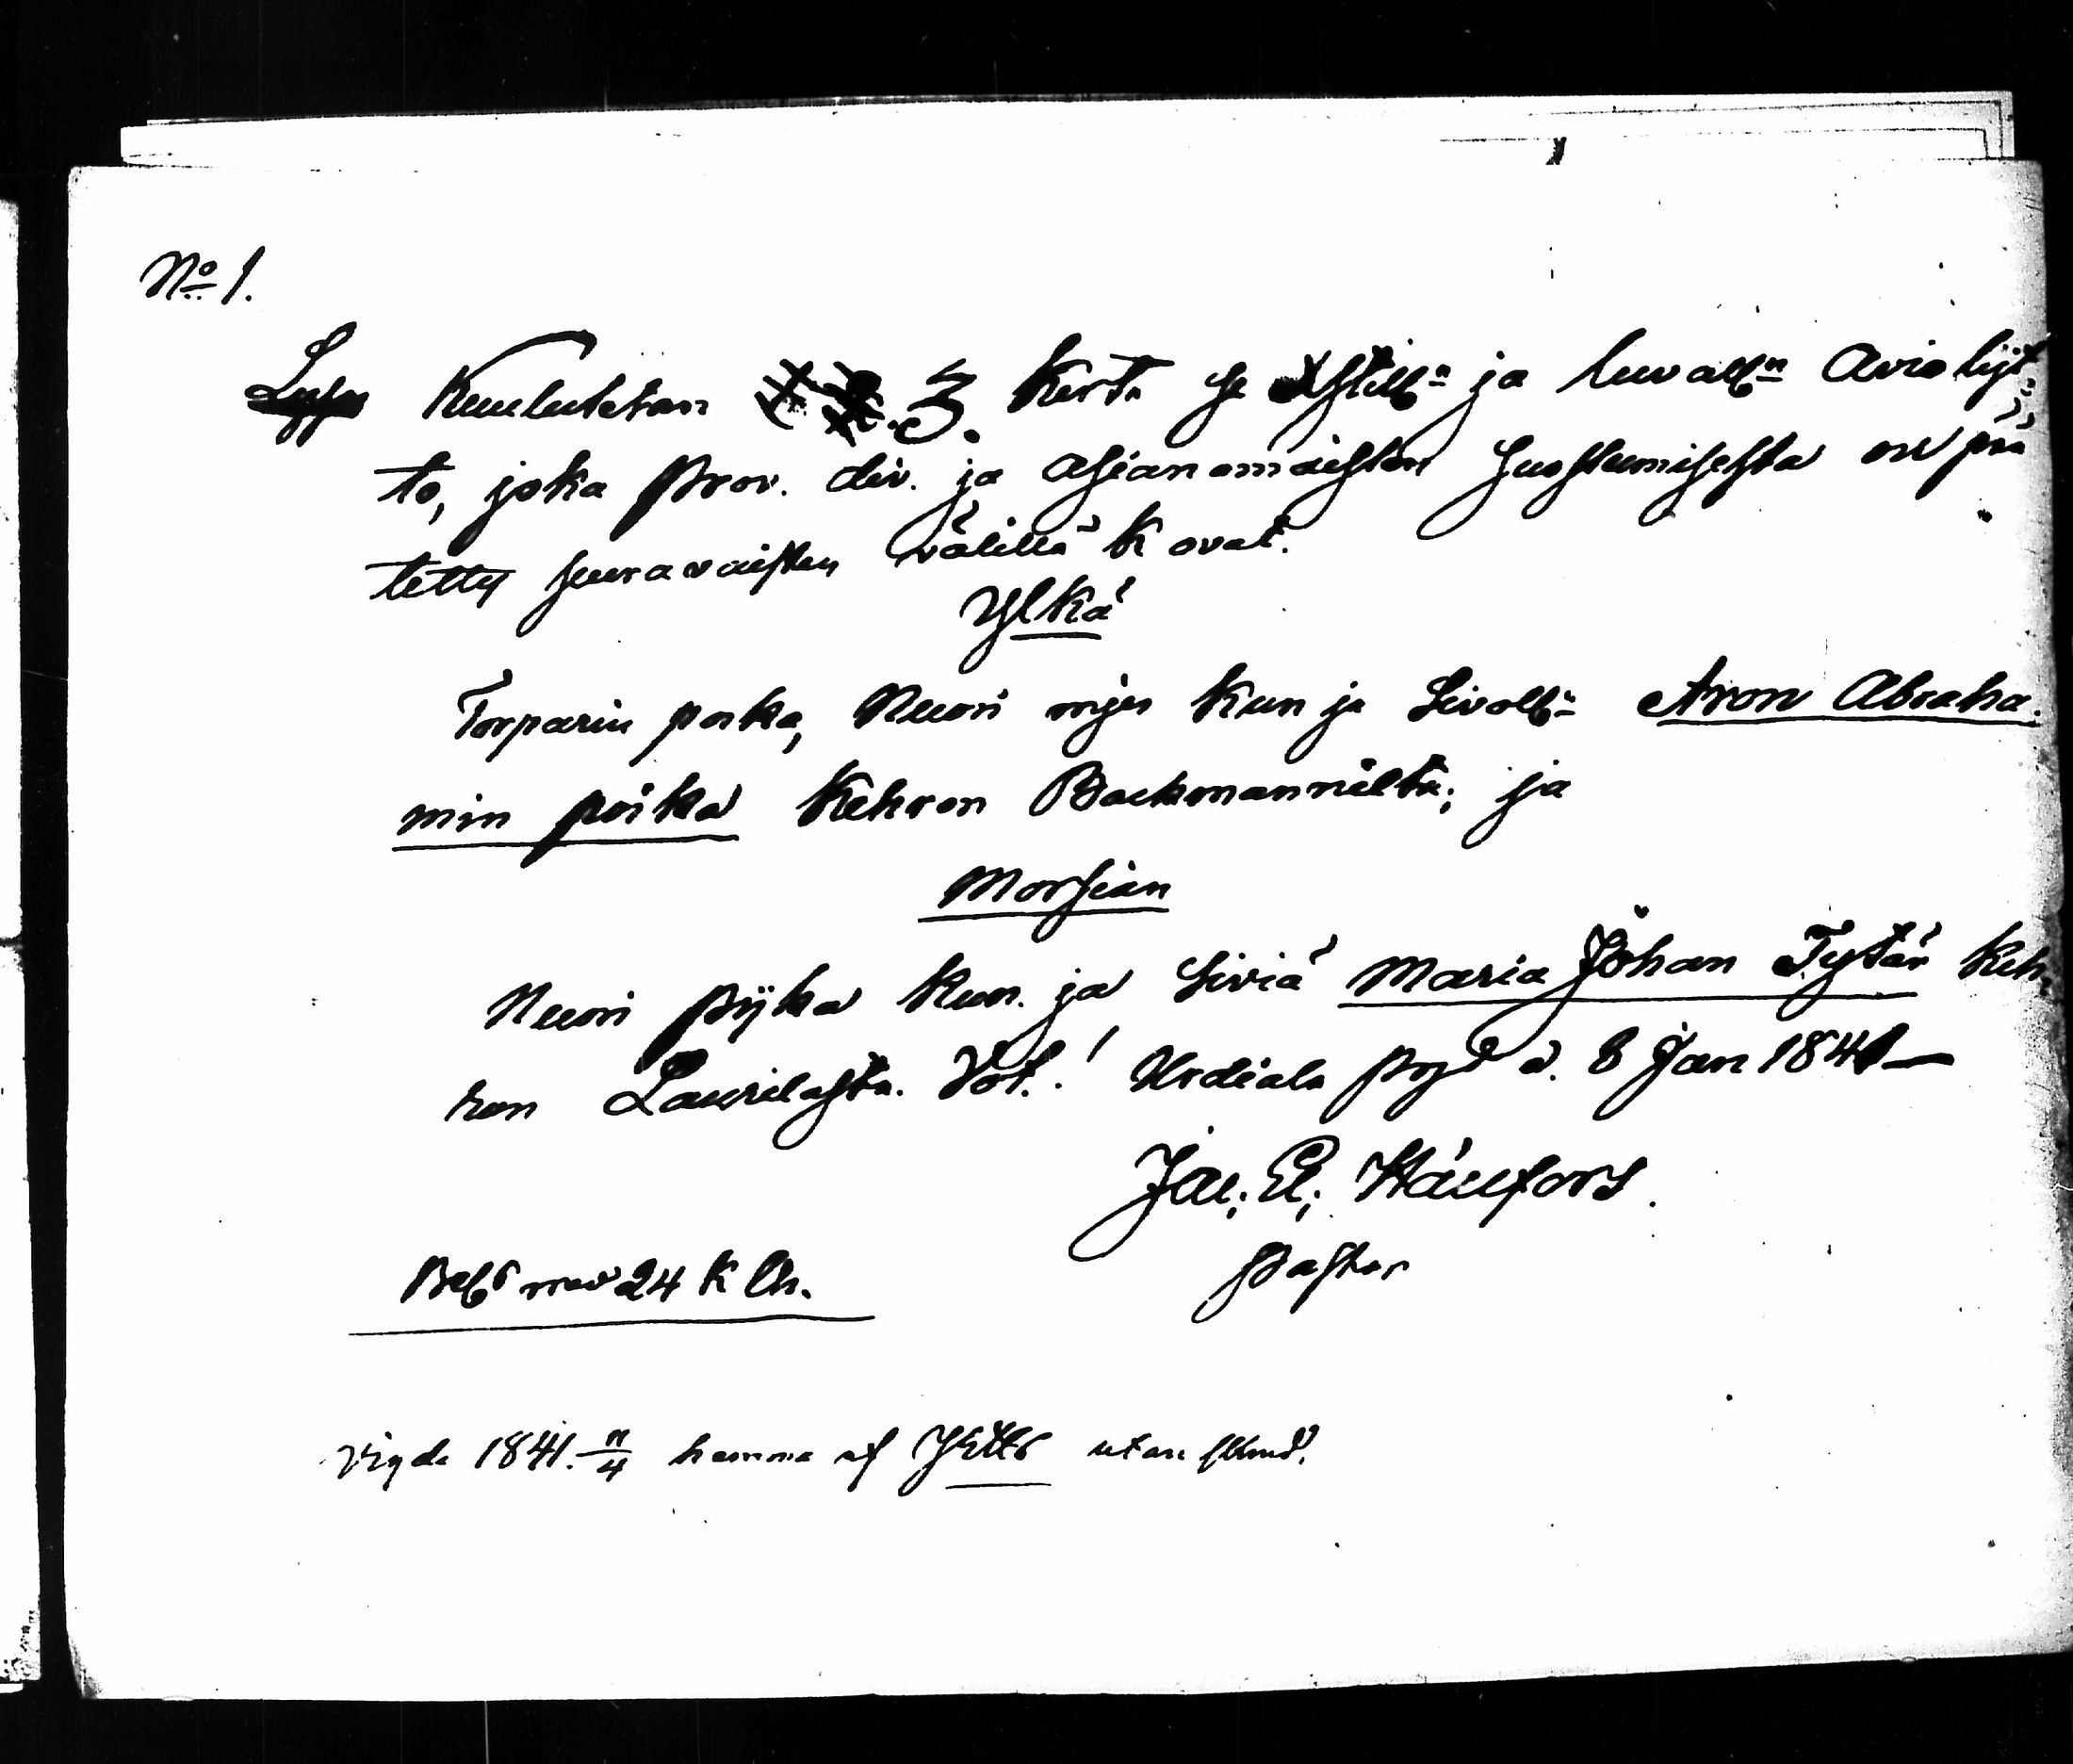 No 1.
Kuulutetan 3. Kerta se Xstill:n ja luvall:n Aviolijt:
to, joka Prov. div. ja asianomaisten suostumisesta on pää
tetty seuravaisten välillä k ovat.
Ylkä
Torparin poika, Nuori mjes Kun ja Sivoll:n Aron Abraha.
min poika Kehron Backmannilta; ja
Morsian
Nuori pijka kun. ja Siviä Maria Johan Tytär Keh
ron Laurilasta. Vot.! Urdiala Prgd d. 8 Jan 1841
Jac. El. Hällfors.
Pastor
24 k
Vigde 1841. 11/4 hemma af utan